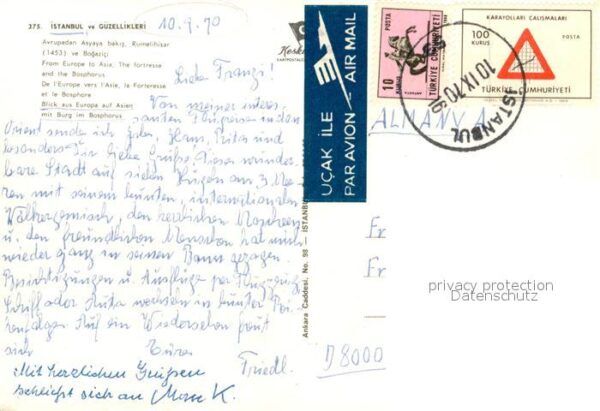 375. İSTANBUL ve GÜZELLİKLERİ
10.9.70
Avrupadan Asyaya bakış, Rumelihisar
(1453) ve Boğaziçi
From Europe to Asia, The fortresse
and the Bosphorus
De l'Europe vers l'Asie, la Forteresse
et le Bosphore
Blick aus Europa auf Asien
mit Burg im Bosphorus
Keskin
Liebe Franzi!
Von meiner interes-
santen Flugreise in den
Orient sende ich Hans, Rita und
besonders Dir liebe Grüße. Diese wunder-
bare Stadt auf sieben Hügeln am 3 Mee-
ren mit seinem bunten, internationalen
Völkergemisch, den herrlichen Moscheen
u. den freundlichen Menschen hat mich
wieder ganz in seinen Bann gezogen.
Besichtigungen u. Ausflüge per Flugzeug,
Schiff oder Auto wechseln in bunter Rei-
henfolge. Auf ein Wiedersehen freut
sich Eure
Friedl.
Mit herzlichen Grüßen
schließt sich an K.
Ankara Caddesi, No. 98 — İSTANBUL
UÇAK İLE
PAR AVION - AIR MAIL
POSTA
10
KURUŞ
TÜRKİYE CUMHURİYETİ
KARAYOLLARI ÇALIŞMALARI
100
KURUŞ
POSTA
TÜRKİYE CUMHURİYETİ
10 IX 70.16
İSTANBUL
ALMANYA
Fr
Fr
D8000
privacy protection
Datenschutz